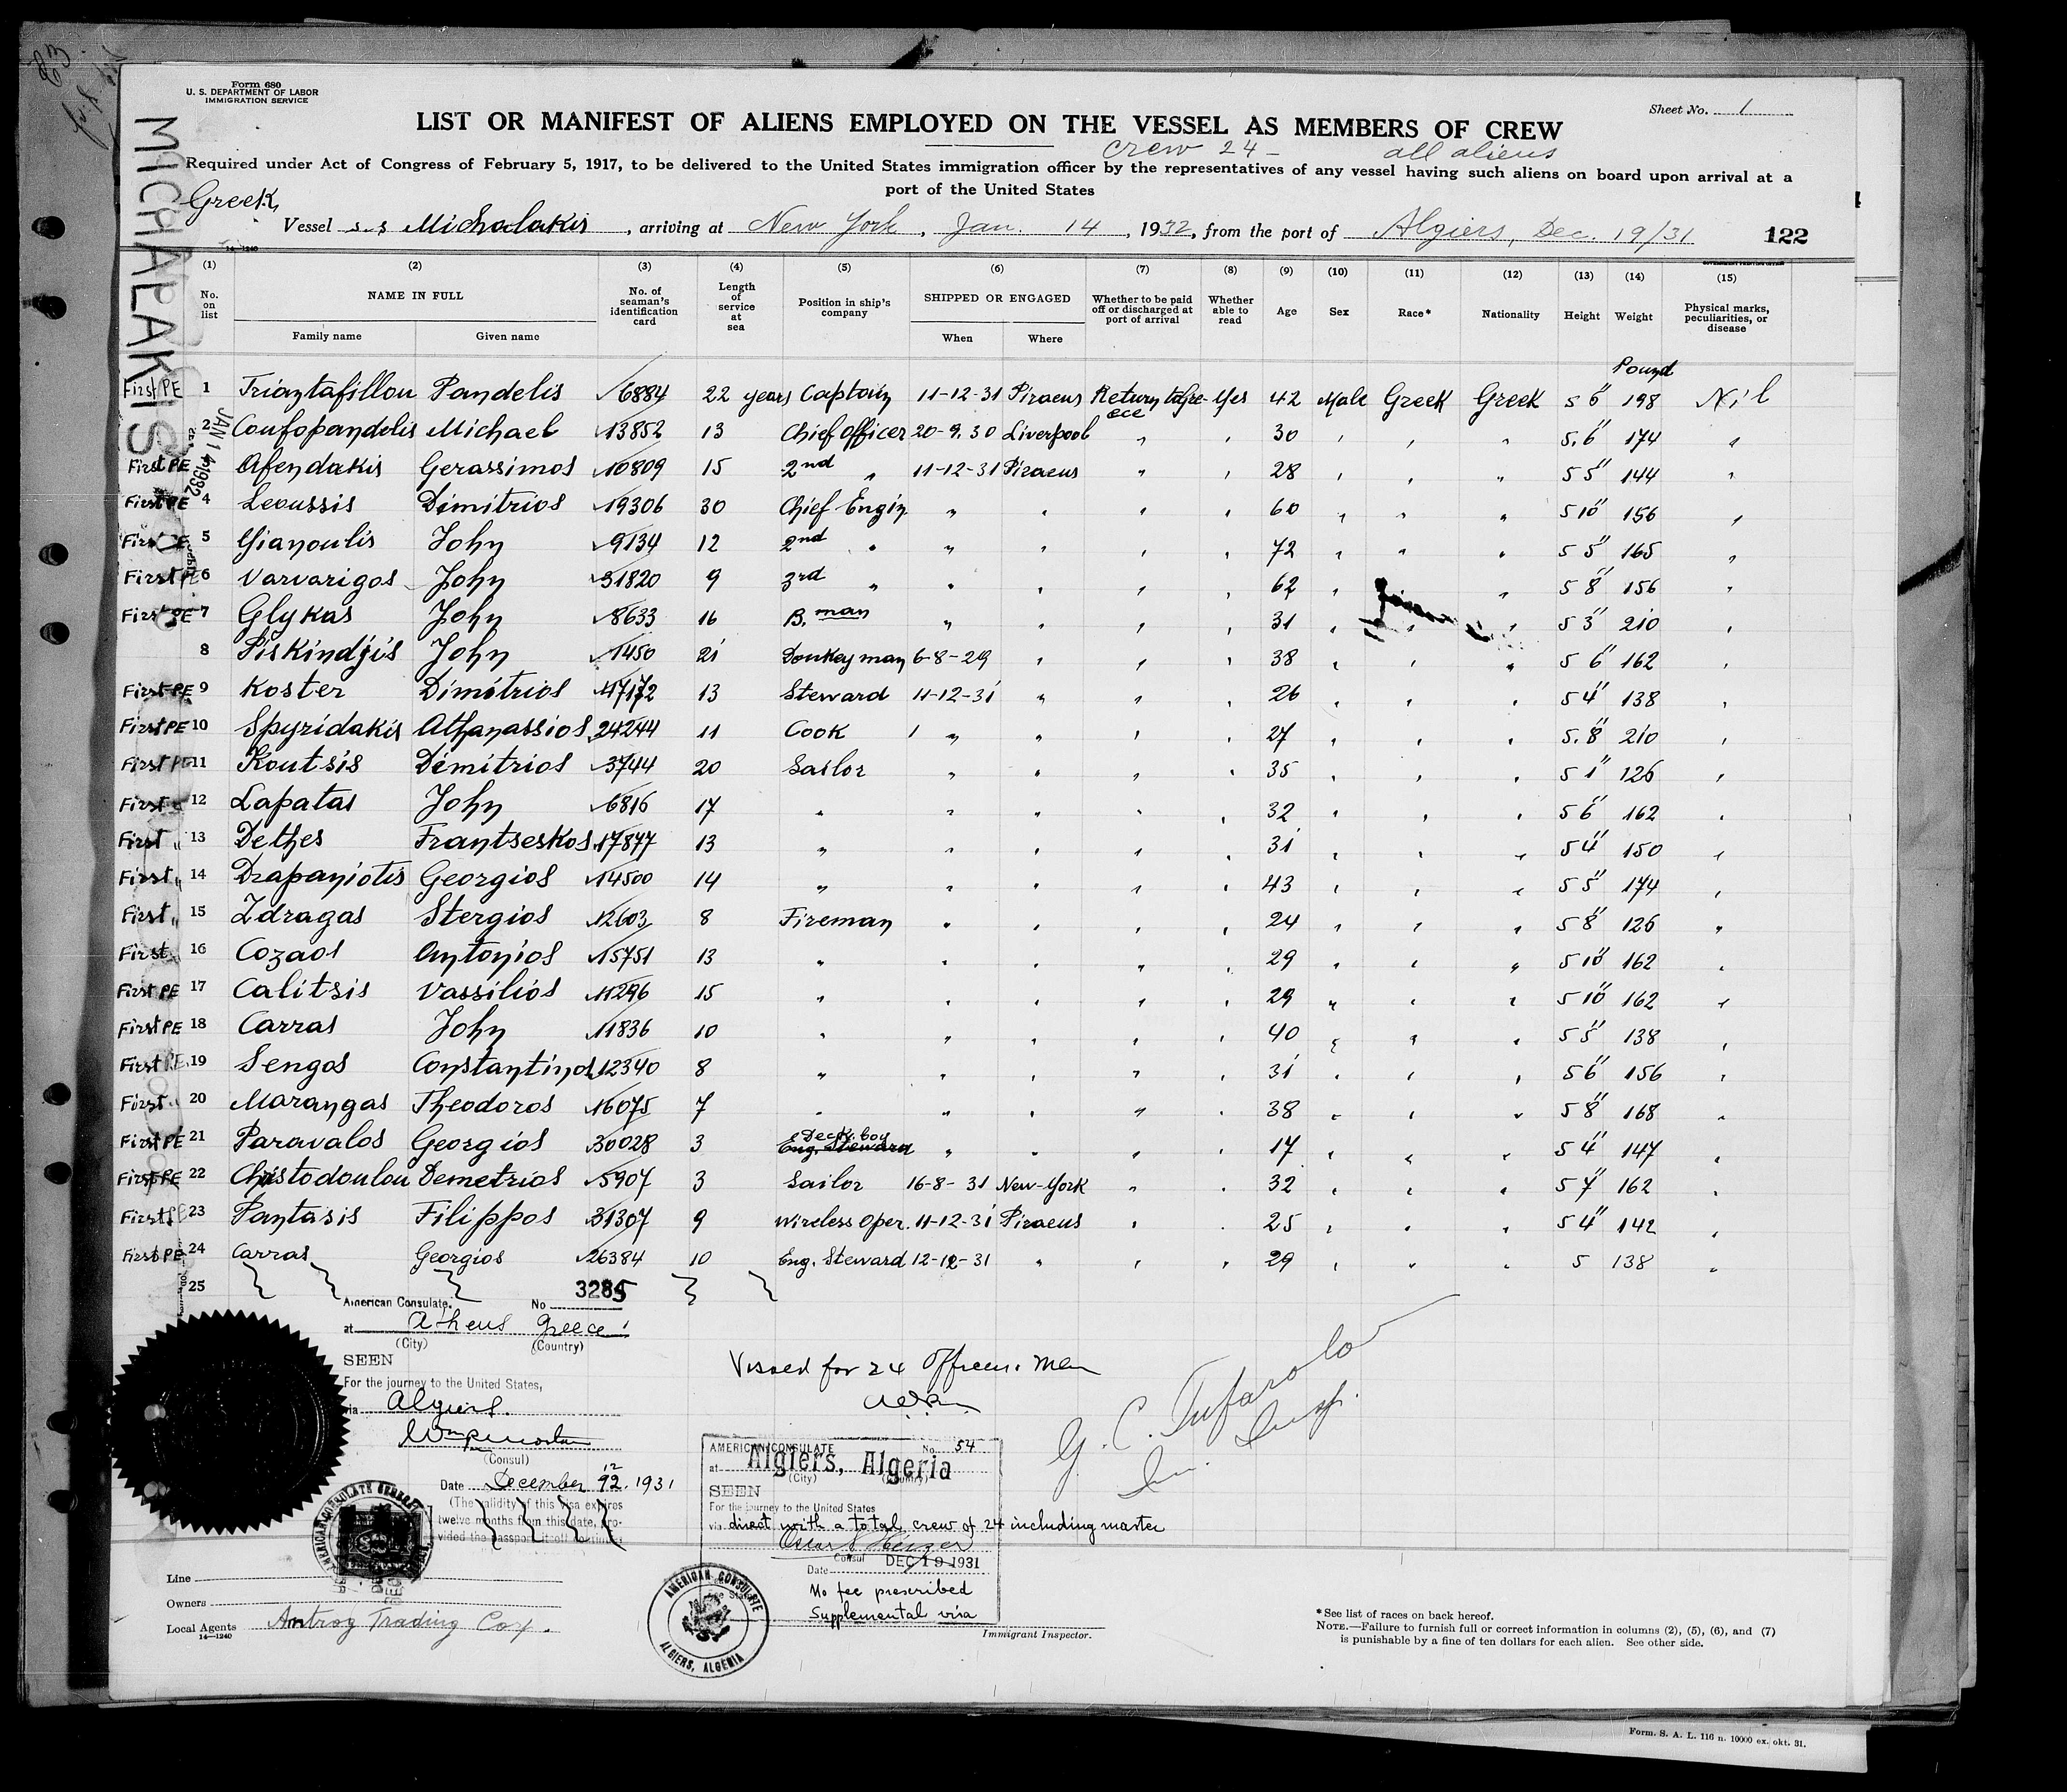 Form 680
U. S. DEPARTMENT OF LABOR
IMMIGRATION SERVICE
Sheet No. 1
LIST OR MANIFEST OF ALIENS EMPLOYED ON THE VESSEL AS MEMBERS OF CREW
Crew 24 - all aliens
Required under Act of Congress of February 5, 1917, to be delivered to the United States immigration officer by the representatives of any vessel having such aliens on board upon arrival at a
port of the United States
Greek
Vessel s.s Michalakis, arriving at New York, Jan. 14, 1932, from the port of Algiers, Dec. 19/31 122
MICHALAKIS
JAN 14 1932
14-1240
(1) (2) (3) (4) (5) (6) (7) (8) (9) (10) (11) (12) (13) (14) (15)
No. on list NAME IN FULL No. of seaman's identification card Length of service at sea Position in ship's company SHIPPED OR ENGAGED Whether to be paid off or discharged at port of arrival Whether able to read Age Sex Race* Nationality Height Weight Physical marks, peculiarities, or disease
Family name Given name When Where
Pound
First PE 1 Triantafillou Pandelis 6884 22 years Captain 11-12-31 Piraeus Return to Greece Yes 42 Male Greek Greek 5 6" 198 Nil
2 Coufopandelis Michael 13852 13 Chief Officer 20-9.30 Liverpool " " 30 " " " 5.6" 174 "
First PE Afendakis Gerassimos 10809 15 2nd " 11-12-31 Piraeus " " 28 " " " 5 5" 144 "
First PE 4 Leoussis Dimitrios 19306 30 Chief Engin " " " " 60 " " " 5 10" 156 "
First PE 5 Gianoulis John 9134 12 2nd " " " " " 72 " " " 5 5" 165 "
First PE 6 Varvarigos John 31820 9 3rd " " " " " 62 " " " 5 8" 156 "
First PE 7 Glykas John 8633 16 B. man " " " " 31 " " " 5 3" 210 "
8 Piskindjis John 1450 21 Donkeyman 6-8-29 " " " 38 " " " 5 6" 162 "
First PE 9 Koster Dimitrios 17172 13 Steward 11-12-31 " " " 26 " " " 5 4" 138 "
First PE 10 Spyridakis Athanassios 24244 11 Cook " " " " 27 " " " 5.8" 210 "
First PE 11 Koutsis Dimitrios 3744 20 Sailor " " " " 35 " " " 5 1" 126 "
First " 12 Lapatas John 6816 17 " " " " " 32 " " " 5 6" 162 "
First " 13 Dethes Frantseskos 17877 13 " " " " " 31 " " " 5 4" 150 "
First " 14 Drapaniotis Georgios 14500 14 " " " " " 43 " " " 5 5" 174 "
First " 15 Zdragas Stergios 12603 8 Fireman " " " " 24 " " " 5 8" 126 "
First " 16 Cozaos Antonios 15751 13 " " " " " 29 " " " 5 10" 162 "
First PE 17 Calitsis Vassilios 11296 15 " " " " " 29 " " " 5 10" 162 "
First PE 18 Carras John 11836 10 " " " " " 40 " " " 5 5" 138 "
First PE 19 Sengos Constantinos 12340 8 " " " " " 31 " " " 5 6" 156 "
First " 20 Marangas Theodoros 16075 7 " " " " " 38 " " " 5 8" 168 "
First PE 21 Paravalos Georgios 30028 3 Deck boy Eng. Steward " " " " 17 " " " 5 4" 147 "
First PE 22 Christodoulou Demetrios 5907 3 Sailor 16-8-31 New-York " " 32 " " " 5 7" 162 "
First PE 23 Pantasis Filippos 31307 9 Wireless Oper. 11-12-31 Piraeus " " 25 " " " 5 4" 142 "
First PE 24 Carras Georgios 26384 10 Eng. Steward 12-12-31 " " " 29 " " " 5 138 "
25
American Consulate. No 3285
at Athens Greece
(City) (Country)
SEEN
For the journey to the United States,
via Algiers.
(Consul)
Date December 12. 1931
(The validity of this visa expires
twelve months from this date, pro-
vided the passport itself continues
Vissed for 24 Officers & Men
G. C. Tufarolo
Im. Insp.
AMERICAN CONSULATE No. 54
at Algiers, Algeria
(City) (Country)
SEEN
For the journey to the United States
via direct with a total crew of 24 including master
Consul DEC 19 1931
Date
No fee prescribed
Supplemental visa
AMERICAN CONSULATE
ALGIERS, ALGERIA
Immigrant Inspector.
Line
Owners
Local Agents Antrog Trading Co.
14-1240
*See list of races on back hereof.
NOTE.—Failure to furnish full or correct information in columns (2), (5), (6), and (7)
is punishable by a fine of ten dollars for each alien. See other side.
Form. S. A. L. 116 n. 10000 ex. okt. 31.